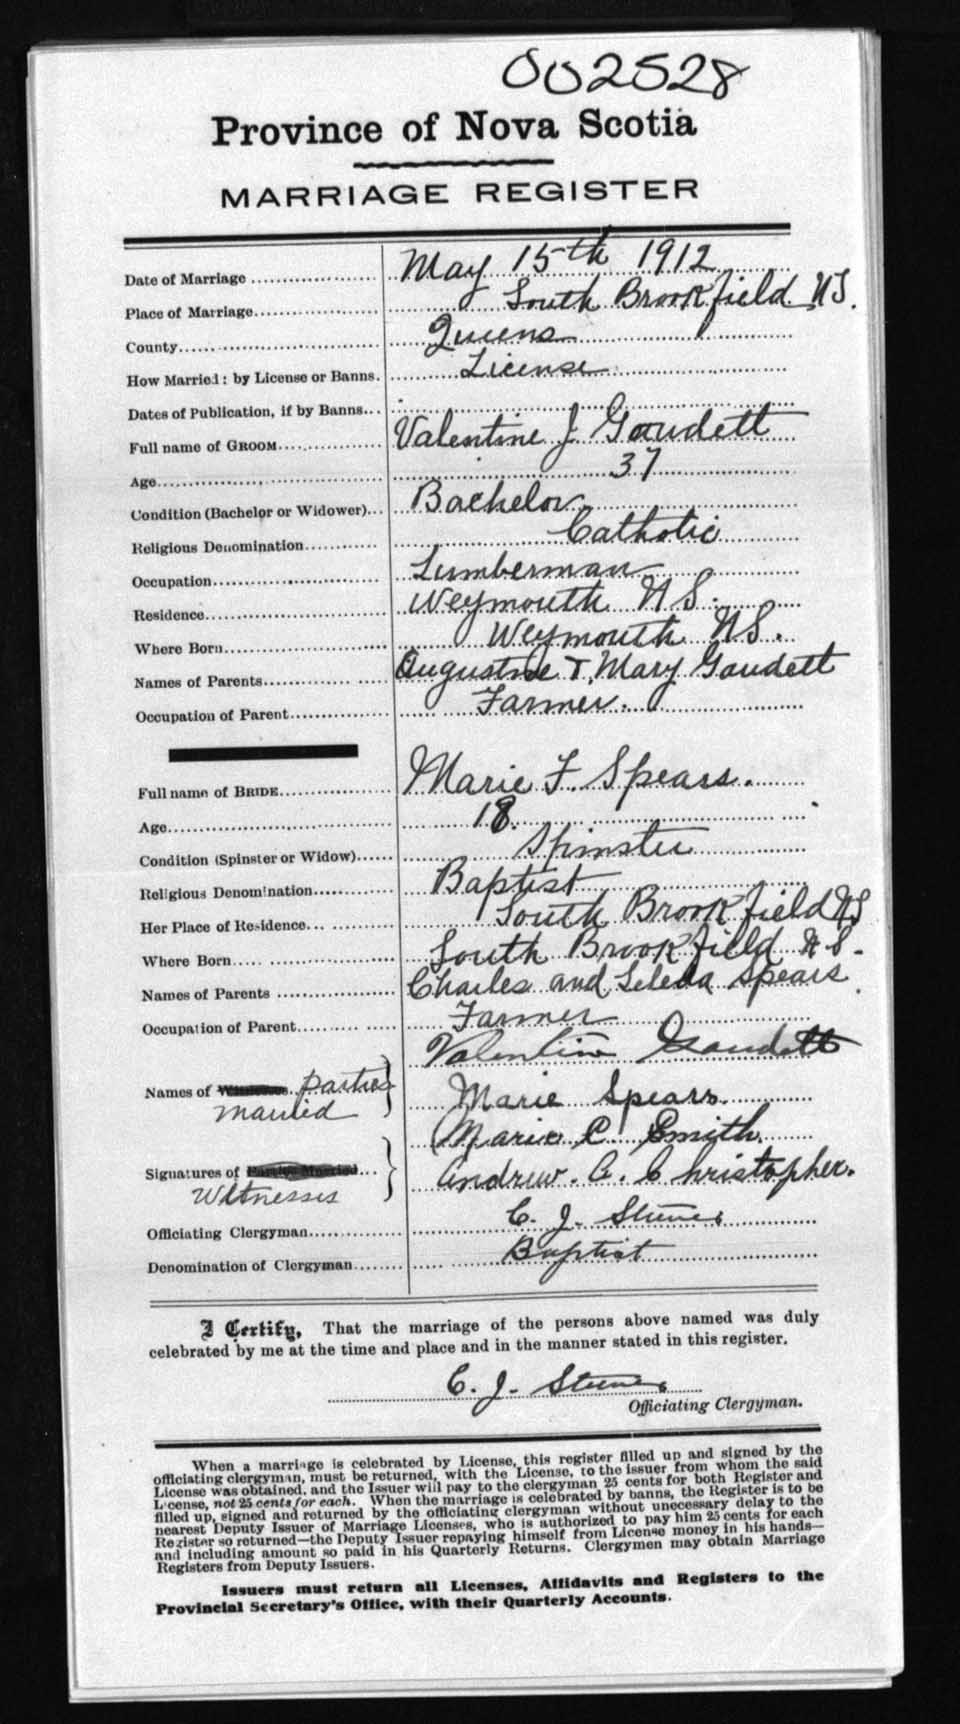 002528
Province of Nova Scotia
MARRIAGE REGISTER
Date of Marriage May 15th 1912
Place of Marriage South Brookfield NS.
County Queens
How Married: by License or Banns. License
Dates of Publication, if by Banns
Full name of GROOM Valentine J Gaudett
Age 37
Condition (Bachelor or Widower) Bachelor
Religious Denomination Catholic
Occupation Lumberman
Residence Weymouth NS.
Where Born Weymouth NS.
Names of Parents Augustine & Mary Gaudett
Occupation of Parent Farmer.
Full name of BRIDE Marie F. Spears.
Age 18.
Condition (Spinster or Widow) Spinster
Religious Denomination Baptist
Her Place of Residence South Brookfield NS
Where Born South Brookfield NS.
Names of Parents Charles and Spears
Occupation of Parent Farmer
Valentine Gaudett
Names of parties Married Marie Spears
Marie C Smith.
Signatures of Parties Married Witnesses Andrew. A. Christopher.
Officiating Clergyman C. J. Steeves
Denomination of Clergyman Baptist
I Certify, That the marriage of the persons above named was duly
celebrated by me at the time and place and in the manner stated in this register.
C. J. Steeves
Officiating Clergyman.
When a marriage is celebrated by License, this register filled up and signed by the
officiating clergyman, must be returned, with the License, to the issuer from whom the said
License was obtained, and the Issuer will pay to the clergyman 25 cents for both Register and
License, not 25 cents for each. When the marriage is celebrated by banns, the Register is to be
filled up, signed and returned by the officiating clergyman without unnecessary delay to the
nearest Deputy Issuer of Marriage Licenses, who is authorized to pay him 25 cents for each
Register so returned—the Deputy Issuer repaying himself from License money in his hands—
and including amount so paid in his Quarterly Returns. Clergymen may obtain Marriage
Registers from Deputy Issuers.
Issuers must return all Licenses, Affidavits and Registers to the
Provincial Secretary's Office, with their Quarterly Accounts.